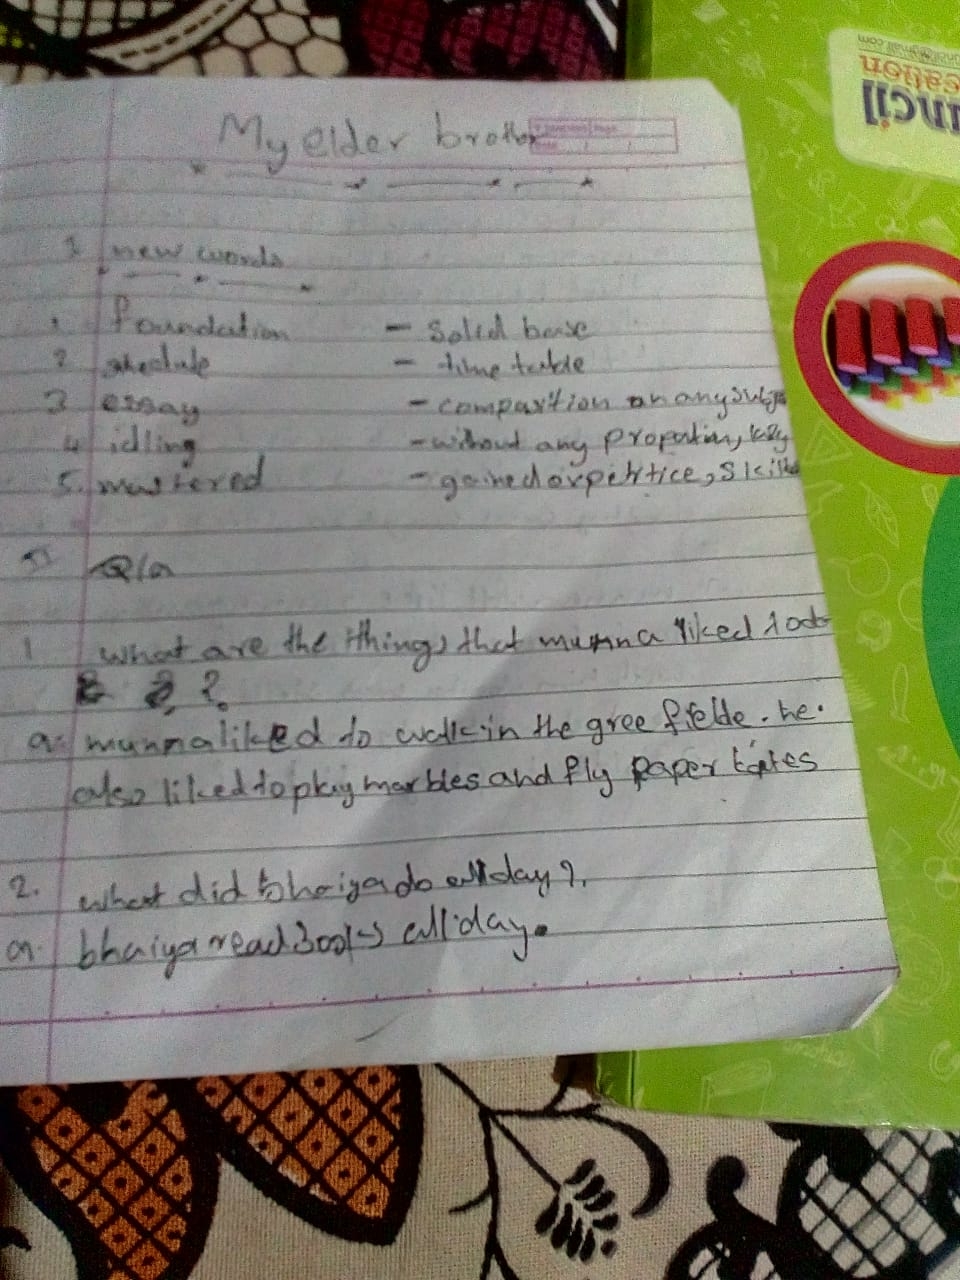 My elder brother
I new words
1. foundation - Solid base
2 shedule - time table
3 essay - compasition on any subje
4 idling - without any
5. mastered - gained expertice, skills
II Q/a
1 what are the things that munna liked to do
?
a. munna liked to walk in the gree fielde. he.
also liked to play marbles and fly paper kites
2. what did bhaiya do all day?
a. bhaiya read Books all day.
uncil
cation